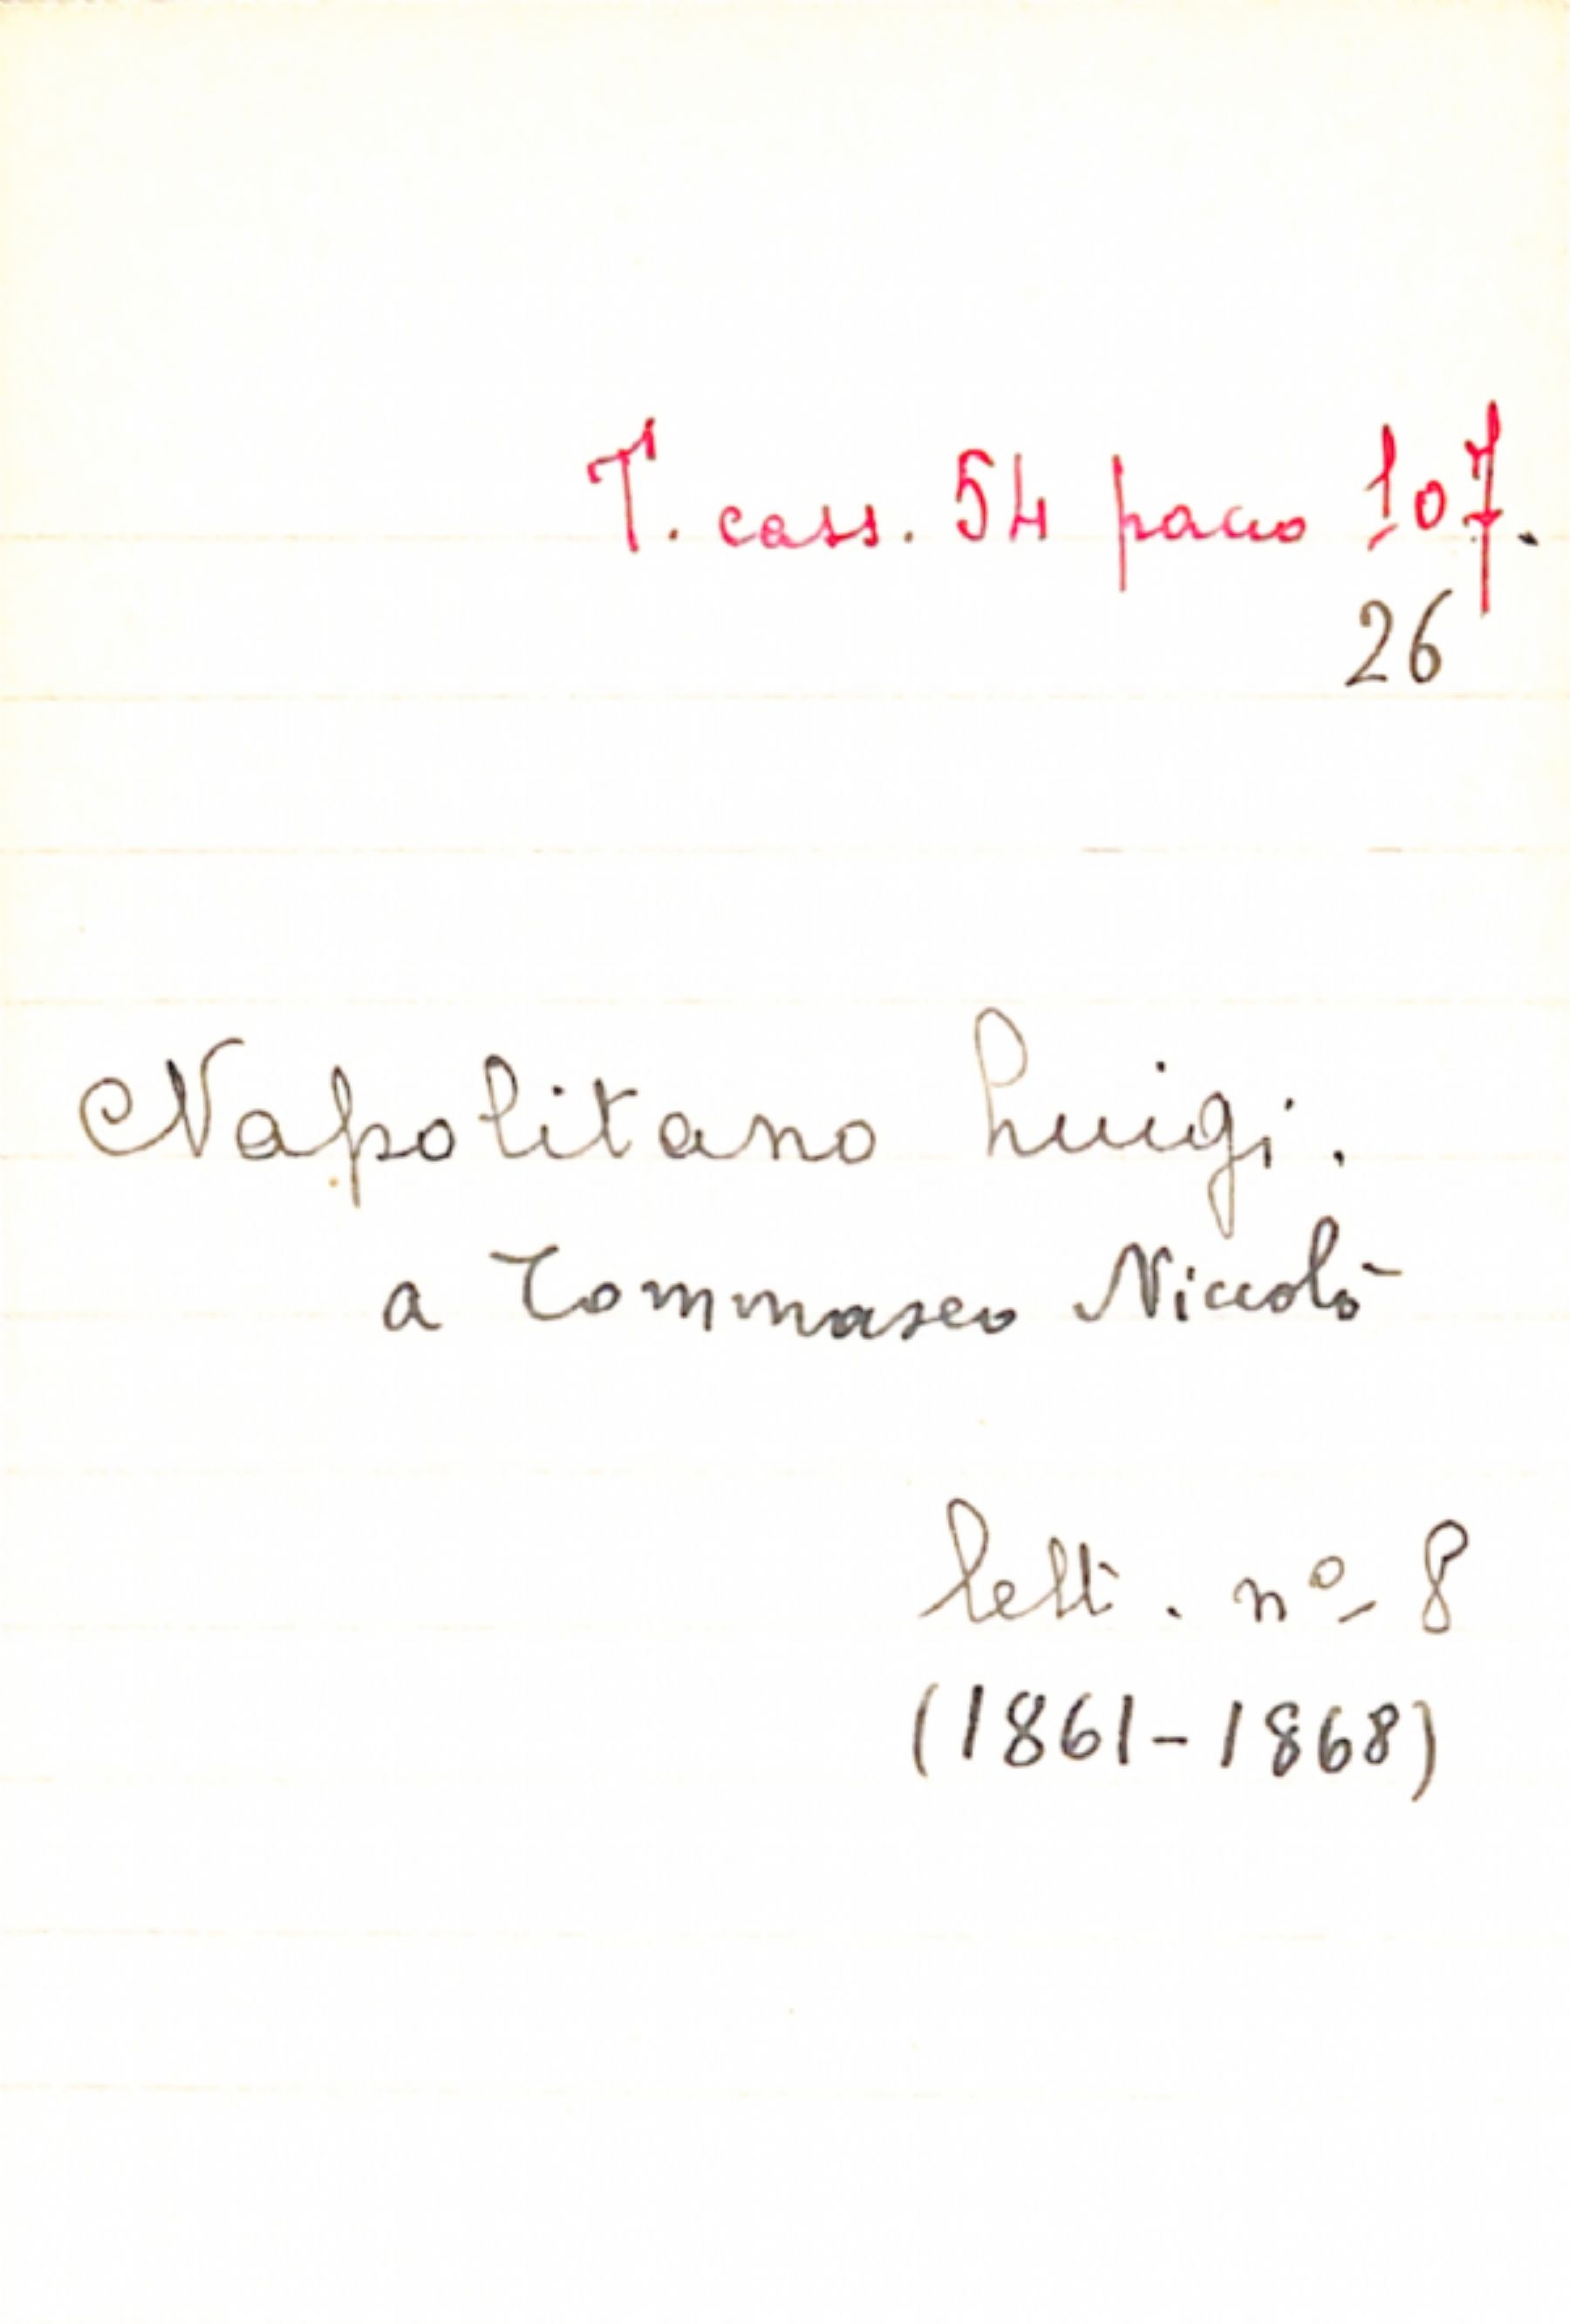 T. cass. 54 pacco 107.
26
Napolitano Luigi.
a Tommaseo Niccolò
lett. nº 8
(1861-1868)